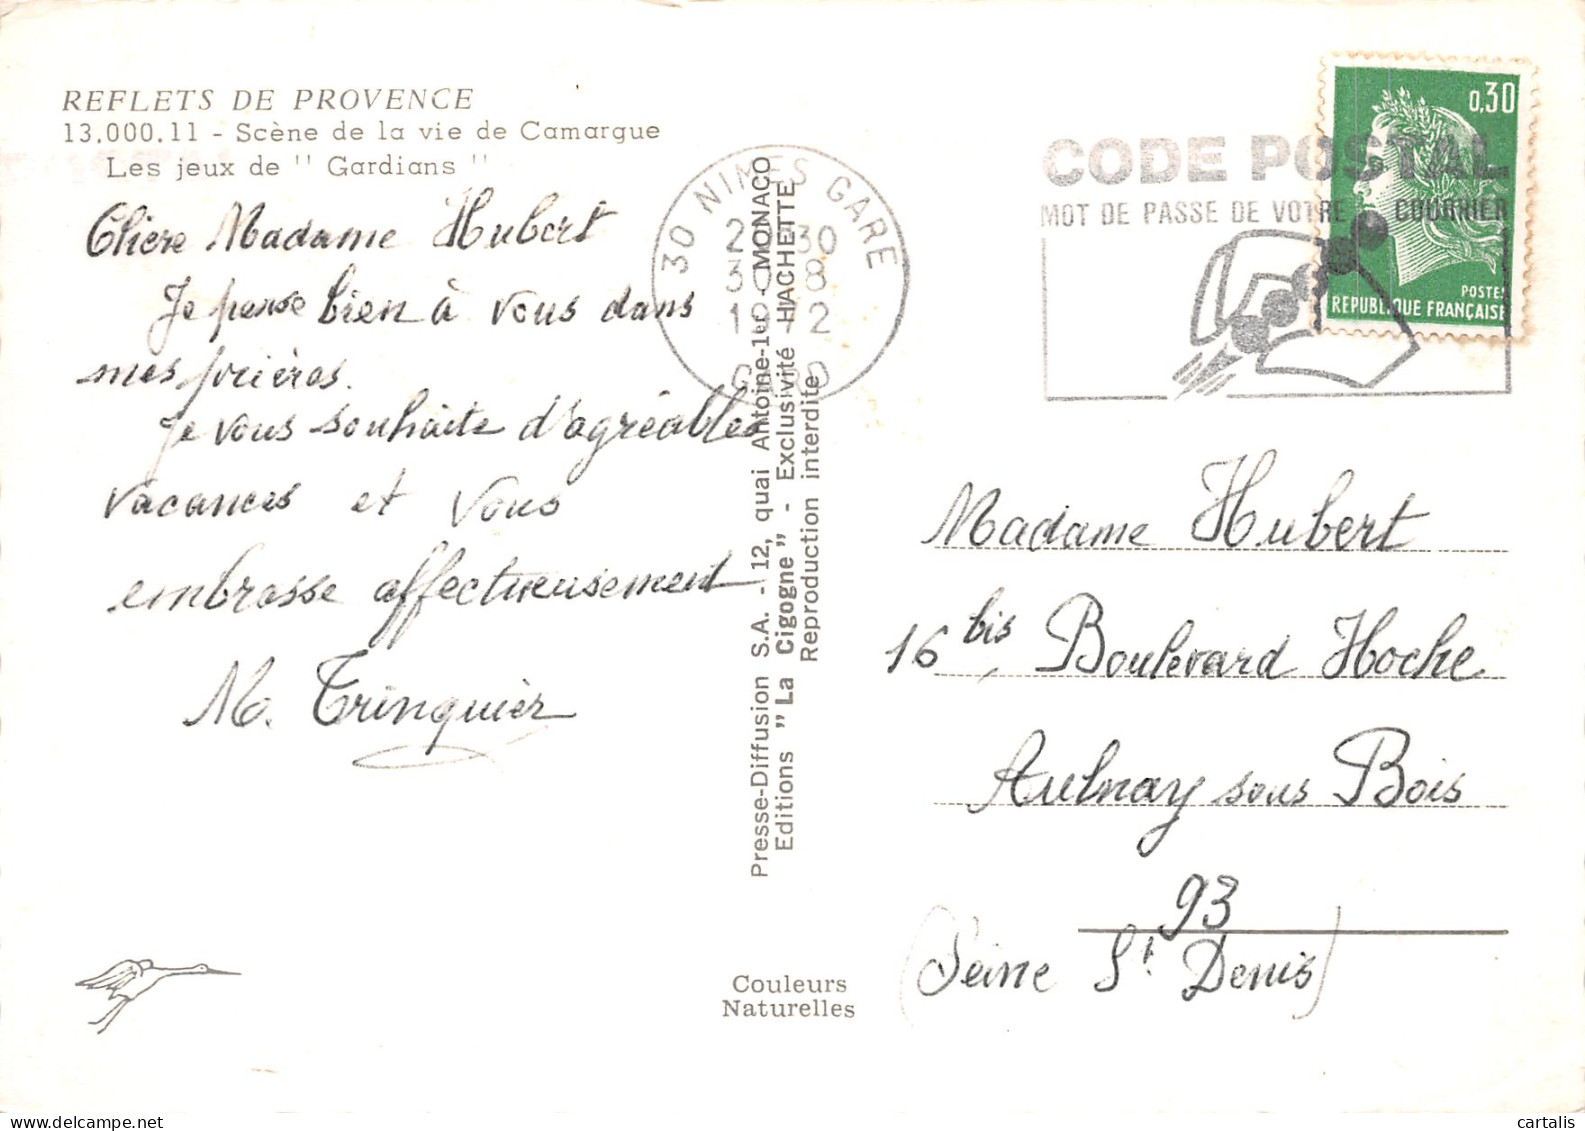 REFLETS DE PROVENCE
13.000.11 - Scène de la vie de Camargue
Les jeux de " Gardians "
Chère Madame Hubert
Je pense bien à vous dans
mes prières.
Je vous souhaite d'agréables
vacances et vous
embrasse affectueusement
M. Trinquier
30 NIMES GARE
30 - 8
GARD
Presse-Diffusion S.A. - 12, quai Antoine-1er - MONACO
Editions "La Cigogne" - Exclusivité HACHETTE
Reproduction interdite
Couleurs
Naturelles
CODE POSTAL
MOT DE PASSE DE VOTRE COURRIER
0,30
POSTES
REPUBLIQUE FRANÇAISE
Madame Hubert
16 bis, Boulevard Hoche
Aulnay sous Bois
93
(Seine St. Denis)
cartalis